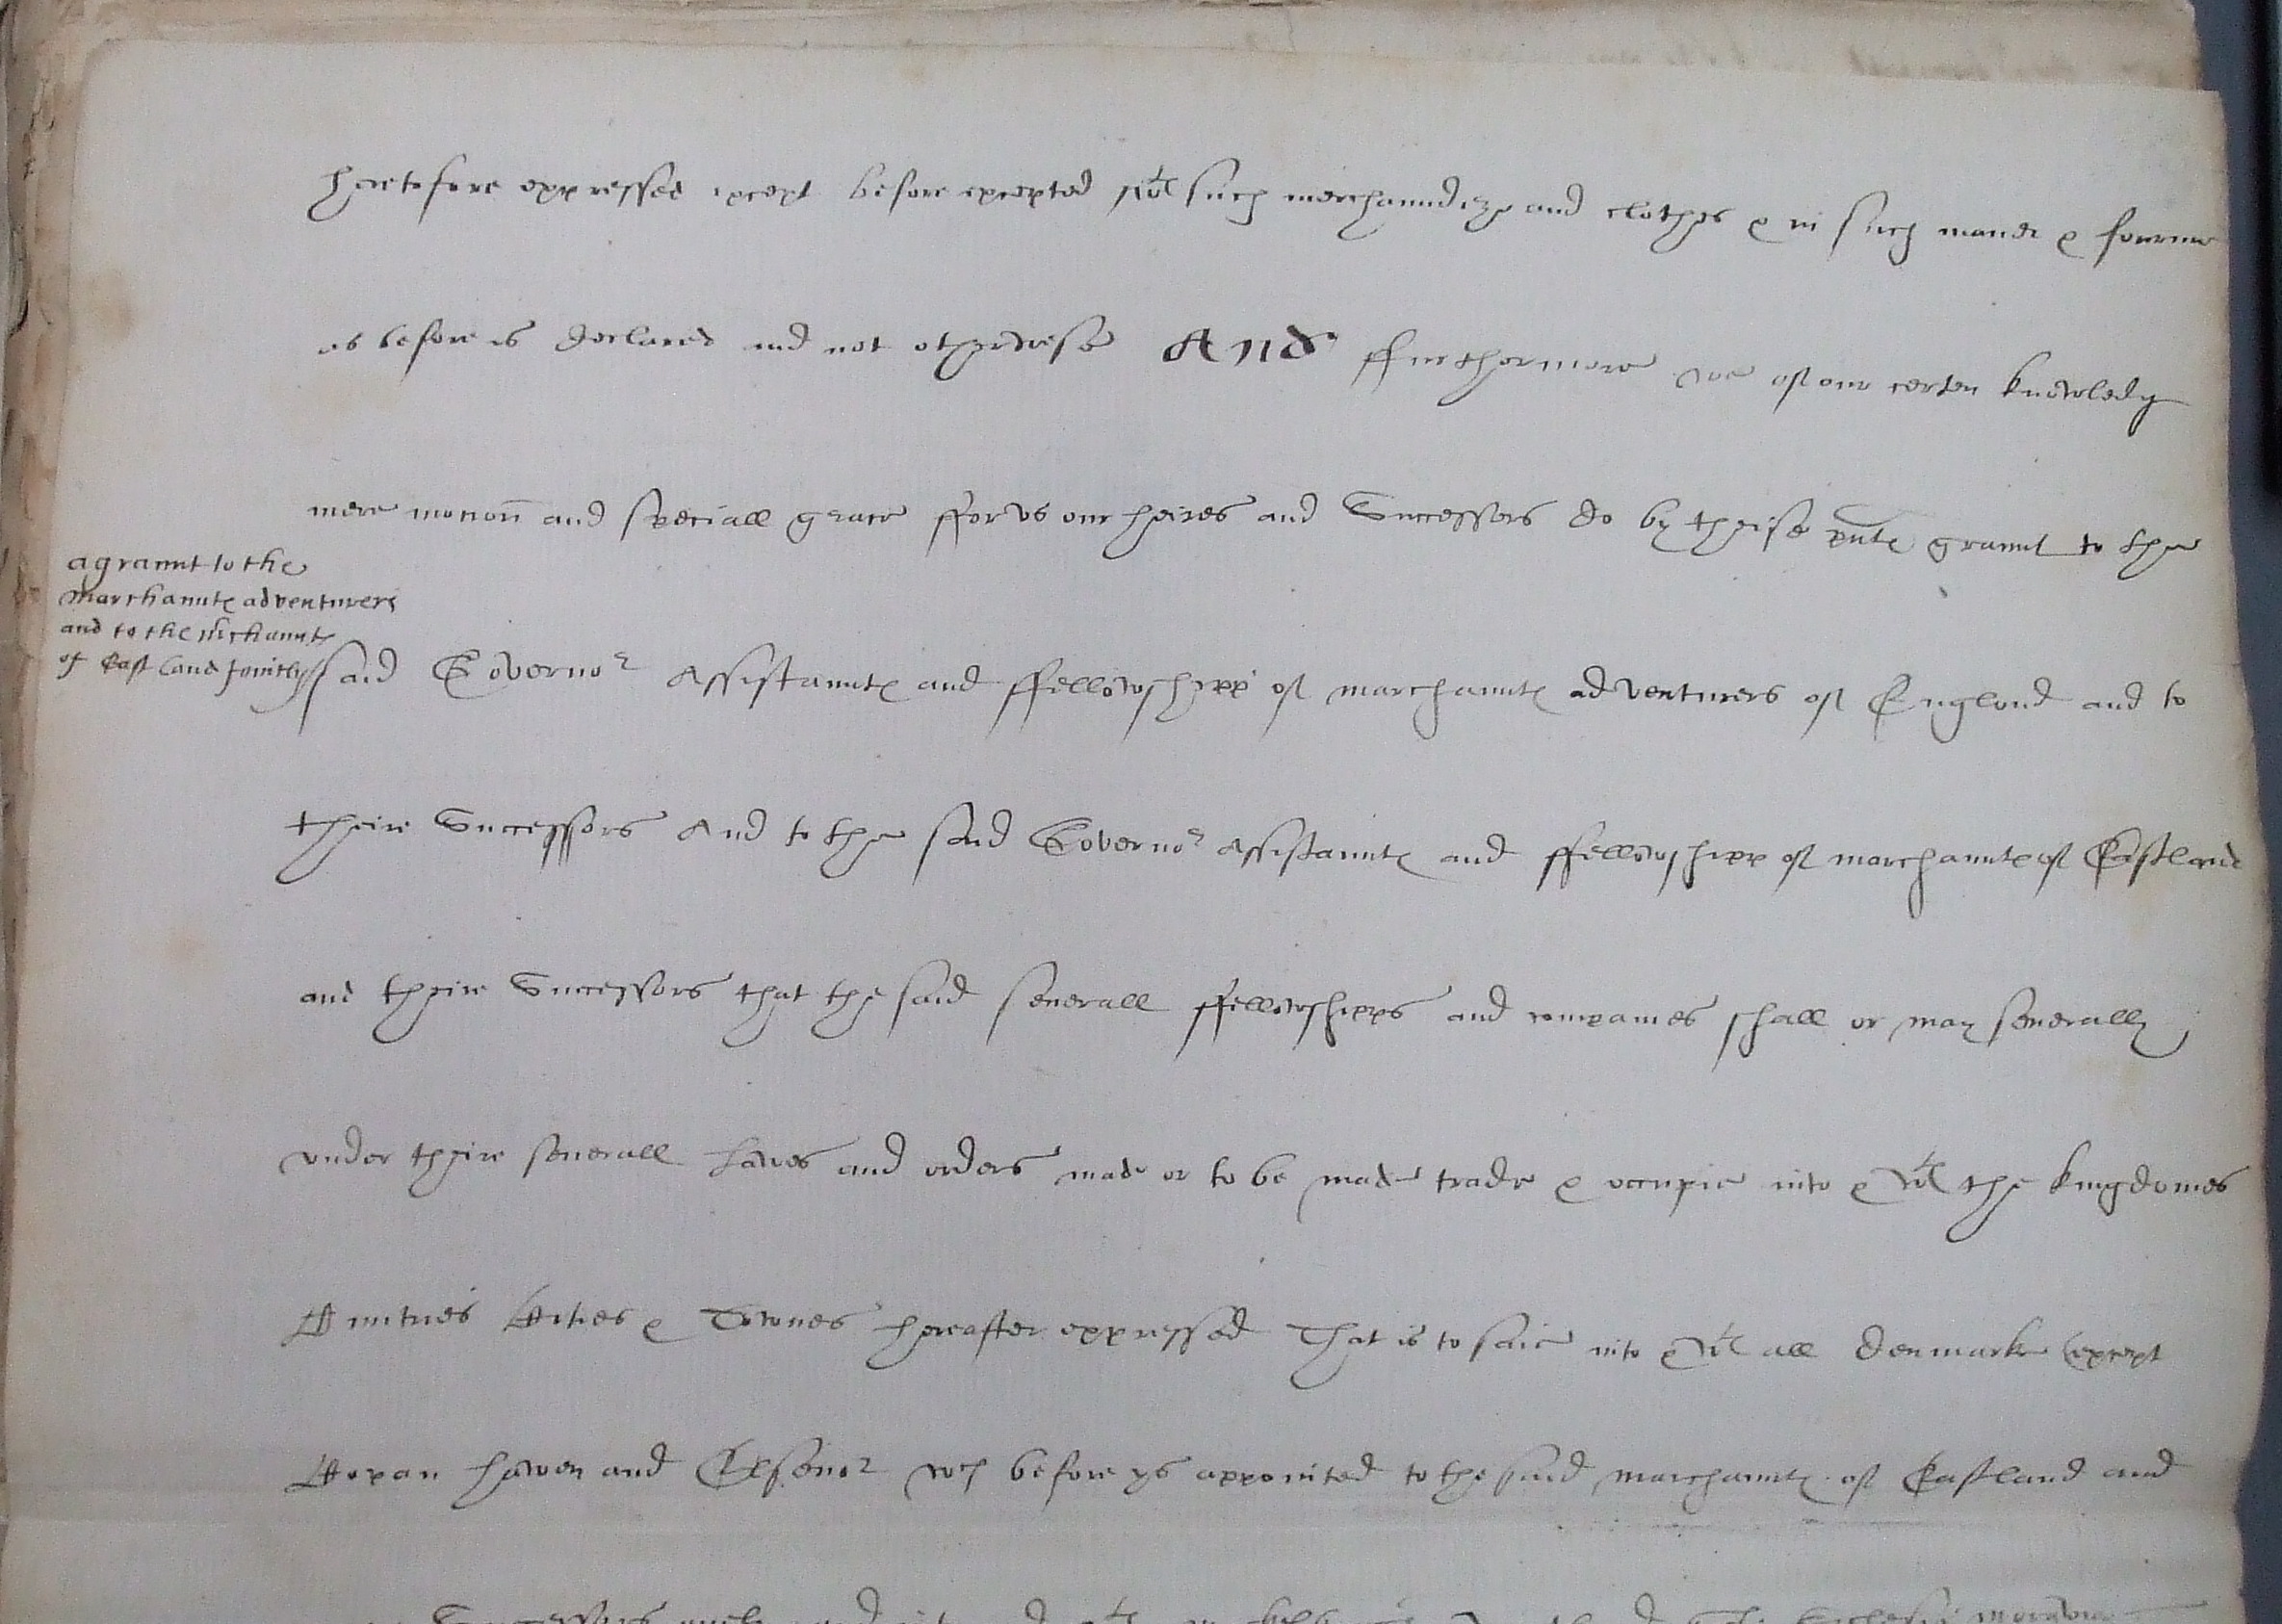 heretofore expressed except before excepted wth such merchaundize and clothes & in such maner & fourme
as before is declared and not otherwise And ffurthermore we of our certen knowledg
mere mocion and speciall grace ffor vs our heires and Successors do by theise pnte graunt to the
a graunt to the
marchaunte adventurers
and to the mchaunte
of Eastland Jointly
said Governor Assistaunte and ffellowshipp of marchaunte adventurers of England and to
theire Successors And to the said Governor Assistaunte and ffellowshipp of marchaunte of Eastland
and theire Successors that the said severall ffellowshipps and companies shall or may severally
vnder theire severall Lawes and orders made or to be made trade & occupie into & wth the kingdomes
Cuntries Cities & Townes hereafter expressed That is to saie into & wth all Denmark (except
Copan haven and Elsenor wch before ys appointed to the said marchaunte of Eastland and
Successors